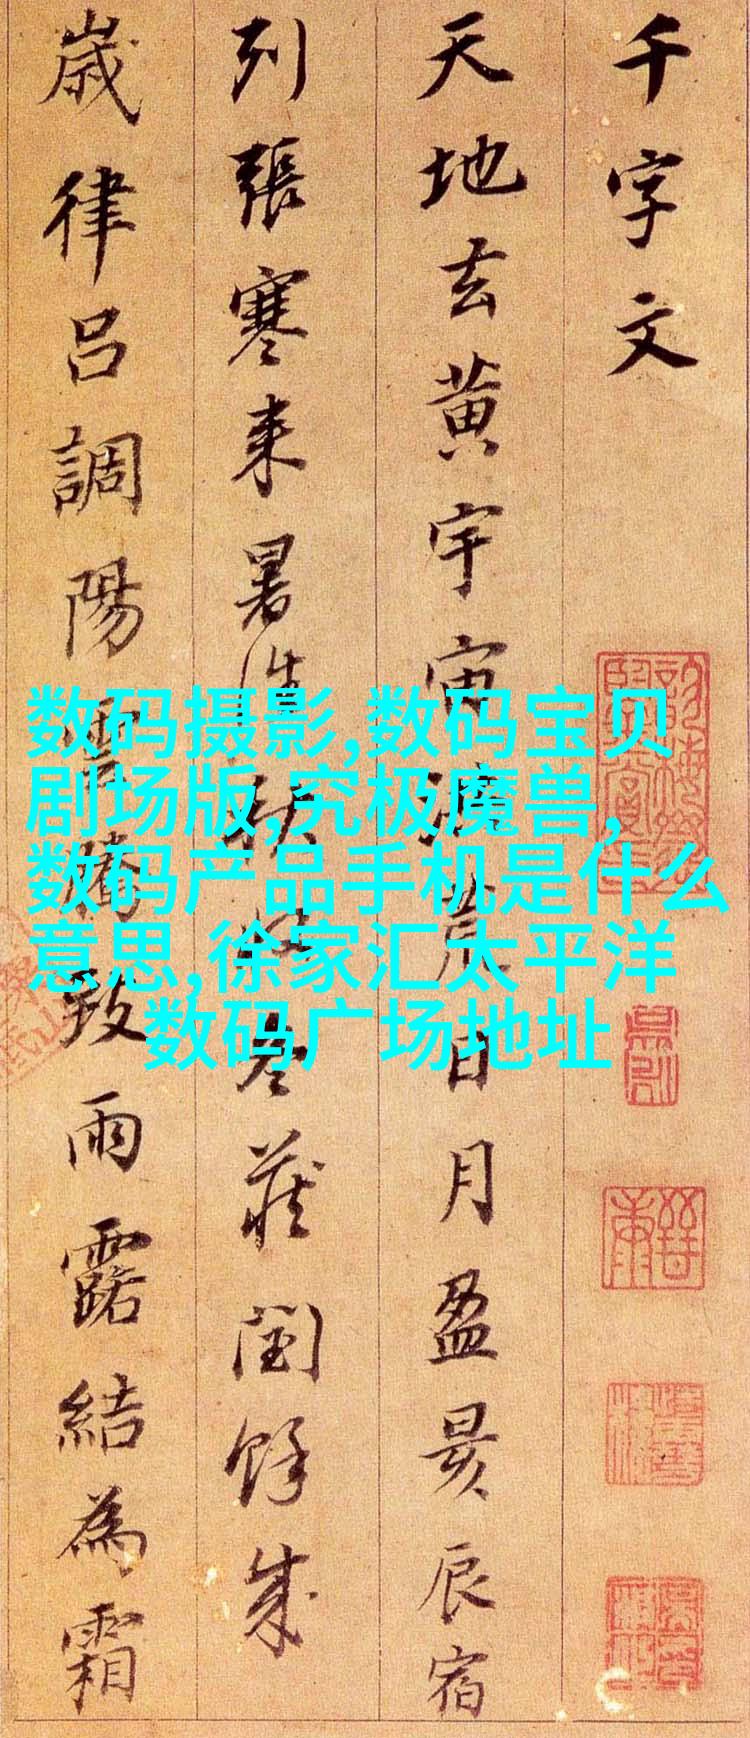 千字文
天地玄黄宇宙洪荒日月盈昃辰宿
列張寒来暑往秋收冬藏閏餘成
歲律吕調陽雲騰致雨露結為霜
数码摄影,数码宝贝
剧场版,究极魔兽,
数码产品手机是什么
意思,徐家汇太平洋
数码广场地址